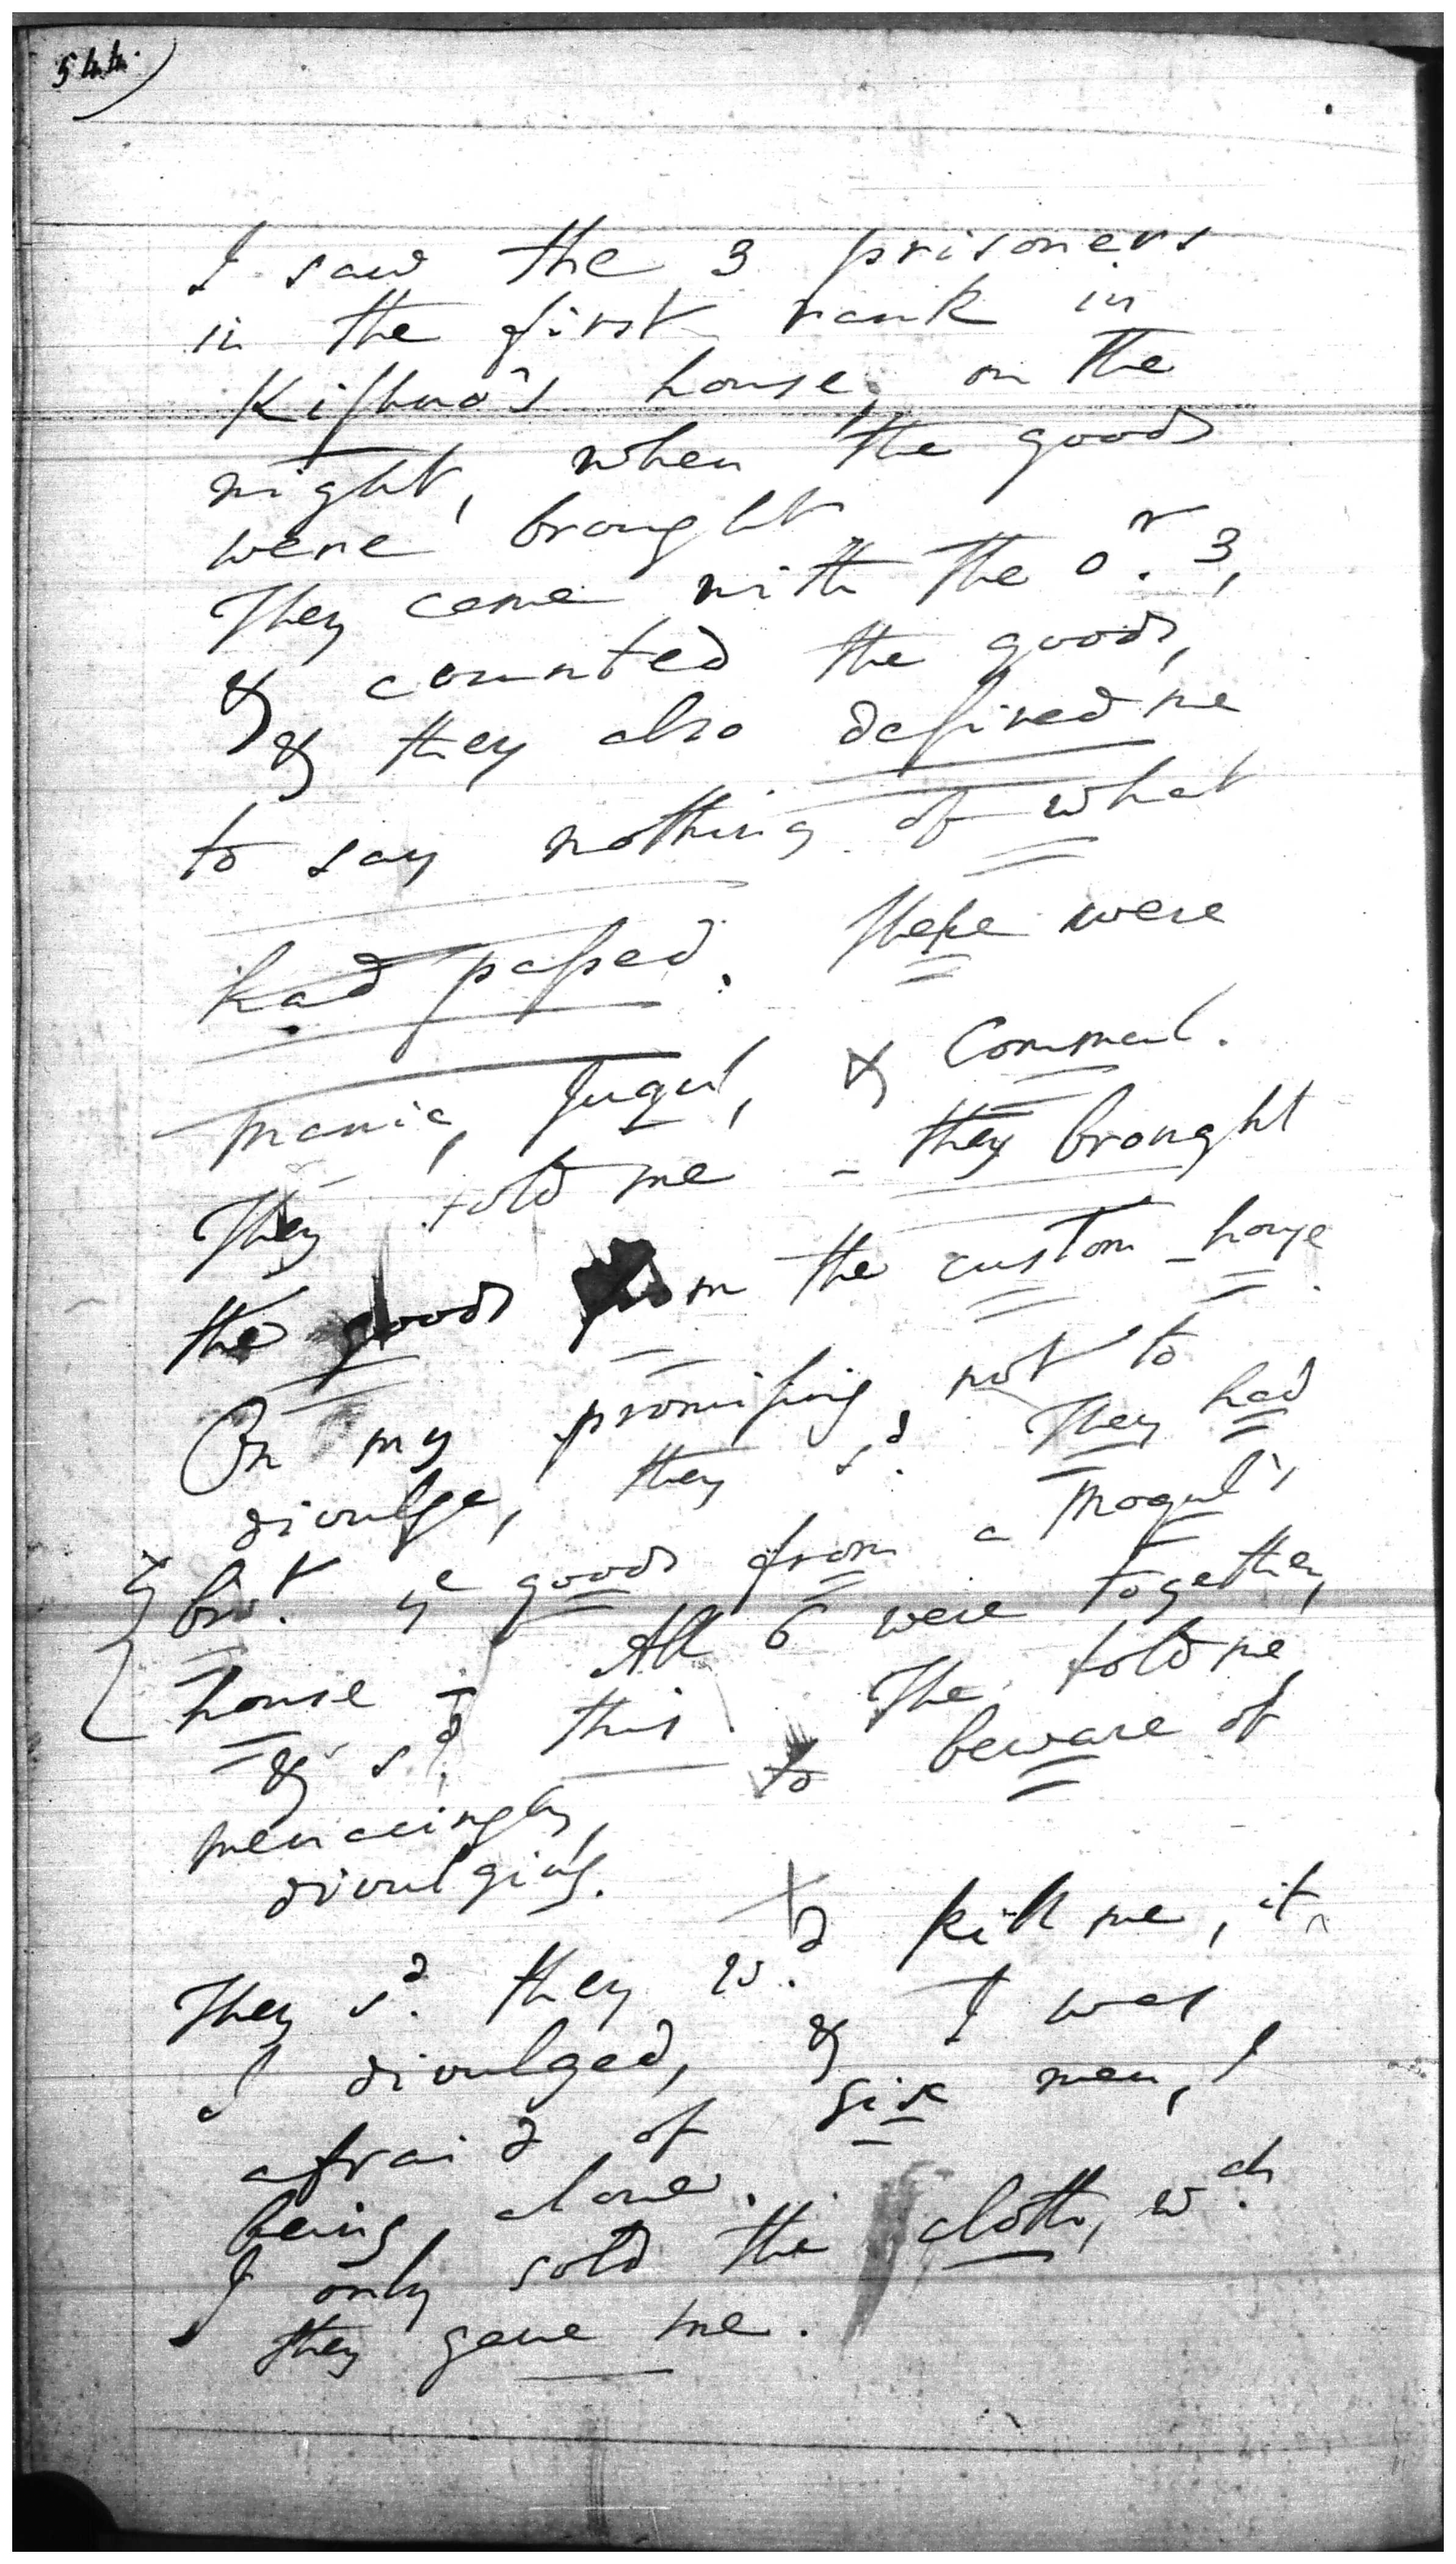 544
I saw the 3 prisoners
in the first rank in
Kiſhno's house, on the
night, when the goods
were brought
They came with the o.r 3,
& counted the goods,
& they also deſired me
to say nothing of what
had paſsed. Theſe were
Manic, Jugul, & Commal.
They told me - they brought
the goods from the custom-house
On my promiſing, not to
divulge, they s.d They had
bro.t ye goods from a Mogul's
house - All 6 were together,
& s.d this. The told me,
menacingly, to beware of
divulging.
They s.d they w.d kill me, if
I divulged, & I was
afraid of six men, I
being alone.
I only sold the cloth, w.ch
they gave me.